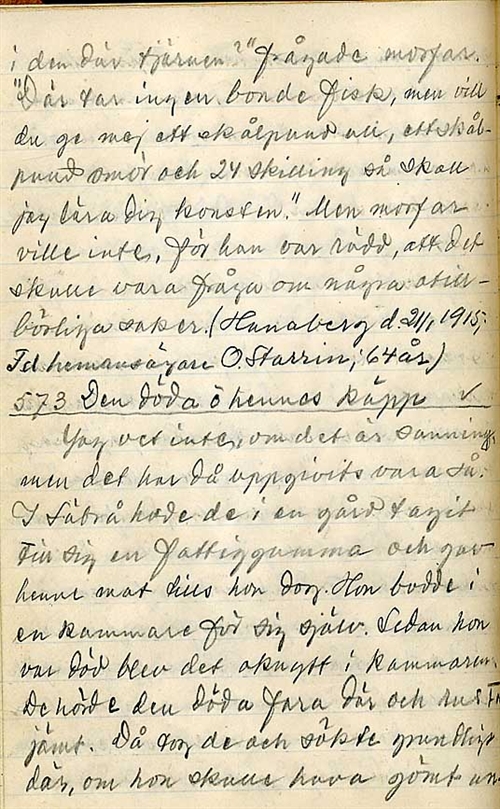 i den där tjärnen?" frågade morfar.
"Där tar ingen bonde fisk, men vill
du ge mej ett skålpund ull, ett skål-
pund smör och 24 skilling så skall
jag lära dig konsten." Men morfar
ville inte, för han var rädd, att det
skulle vara fråga om några otill-
börliga saker. (Hanaberg d. 2/1, 1915;
Fd hemmansägare O. Starrin, 64 år)
573 Den döda o hennes käpp ✓
Jag vet inte, om det är sanning,
men det har då uppgivits vara så.
I Säbrå hade de i en gård tagit
till sig en fattiggumma och gav
henne mat tills hon dog. Hon bodde i
en kammare för sig själv. Sedan hon
var död blev det oknytt i kammaren.
De hörde den döda fara där och
jämt. Då tog de och sökte grundligt
där, om hon skulle hava gömt un-